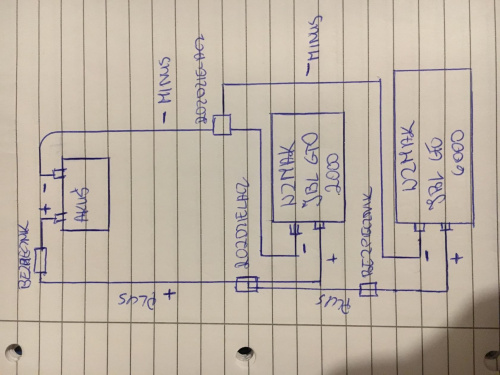 - MINUS
- MINUS
ROZDZIELACZ
WZMAK
JBL GTO
2000
WZMAK
JBL GTO
6000
AKUŚ
+ -
BEZPIECZNIK
ROZDZIELACZ
- +
BEZPIECZNIK
- +
PLUS +
PLUS